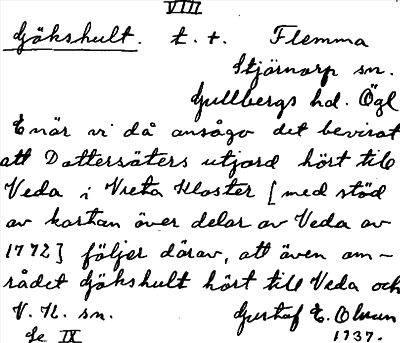 VIII
Gökshult. t. t. Flemma
Stjärnorp sn.
Gullbergs hd. Ögl
Enär vi då ansågo det bevisat
att Dottersäters utjord hört till
Veda i Vreta Kloster [med stöd
av kartan över delar av Veda av
1772] följer därav, att även om-
rådet Gökshult hört till Veda och
V. K. sn. Gustaf E. Olsson
Se IX 1737.